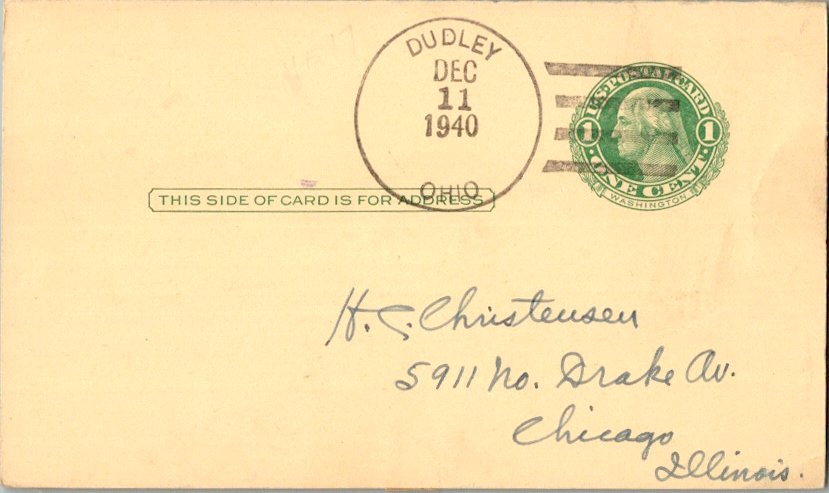 DUDLEY
DEC
11
1940
OHIO
U.S. POSTAL CARD
1 1
ONE CENT
WASHINGTON
THIS SIDE OF CARD IS FOR ADDRESS
H. C. Christensen
5911 No. Drake Av.
Chicago
Illinois.